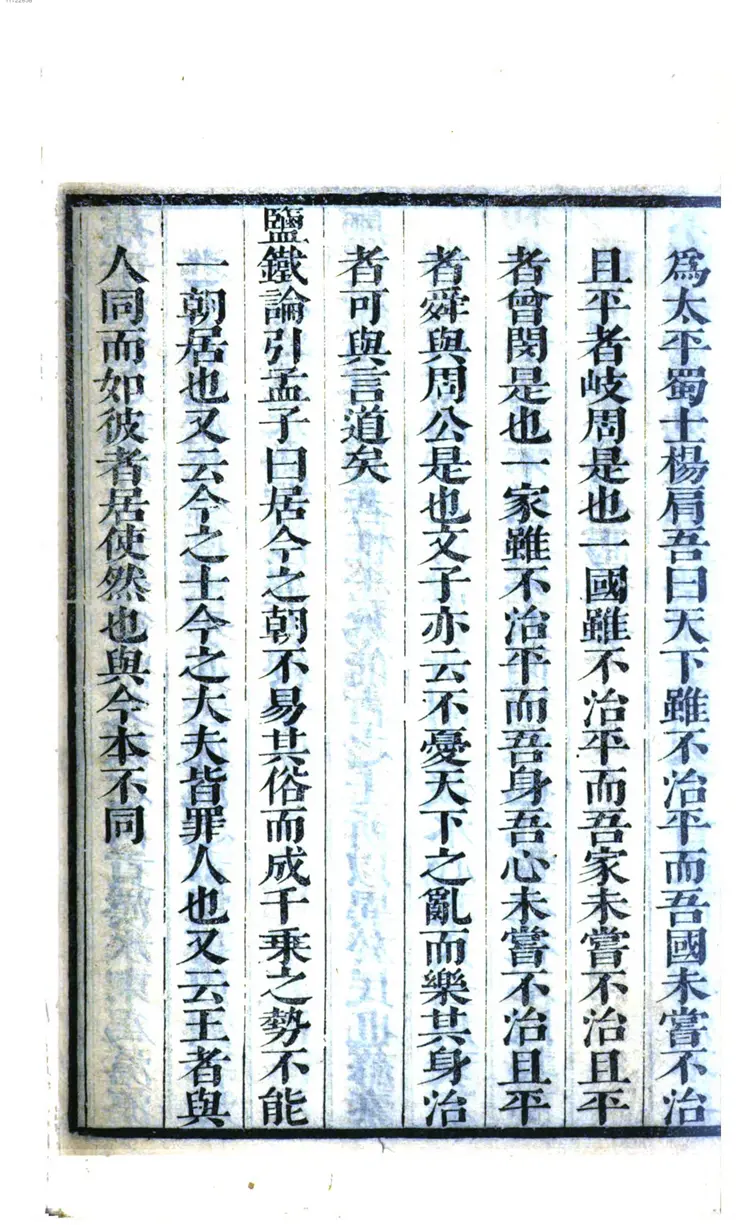 爲太平蜀士楊肩吾曰天下雖不治平而吾國未嘗不治
且平者岐周是也一國雖不治平而吾家未嘗不治且平
者曾閔是也一家雖不治平而吾身吾心未嘗不治且平
者舜與周公是也文子亦云不憂天下之亂而樂其身治
者可與言道矣
鹽鐵論引孟子曰居今之朝不易其俗而成千乘之勢不能
一朝居也又云今之士今之大夫皆罪人也又云王者與
人同而如彼者居使然也與今本不同